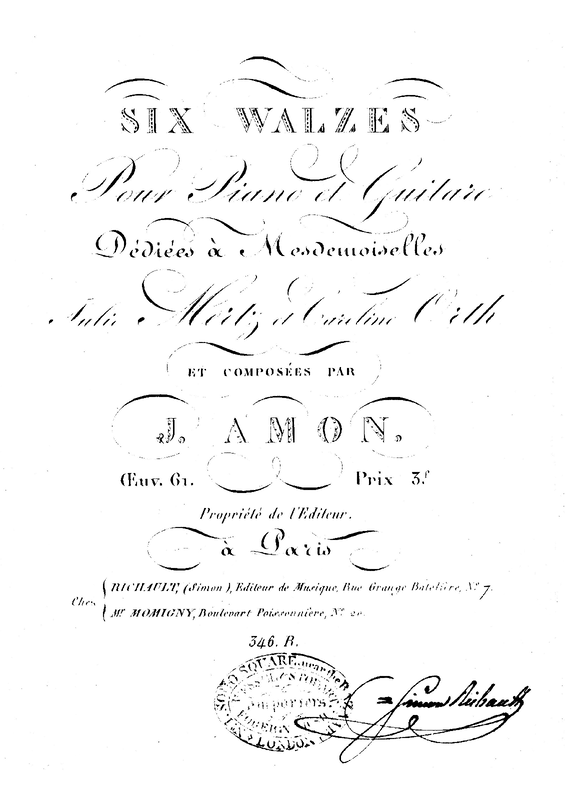 SIX WALZES
Pour Piano et Guitare
Dédiées à Mesdemoiselles
Julie Mertz et Caroline Orth
ET COMPOSÉES PAR
J. AMON.
Œuv. 61. Prix 3.f
Propriété de l'Editeur.
à Paris
Chez
RICHAULT, (Simon), Editeur de Musique, Rue Grange Batelière, No. 7.
Mr. MOMIGNY, Boulevart Poissonnière, No. 20.
346. R.
SOHO SQUARE
Importers
FOREIGN
LONDON
Simon Richault